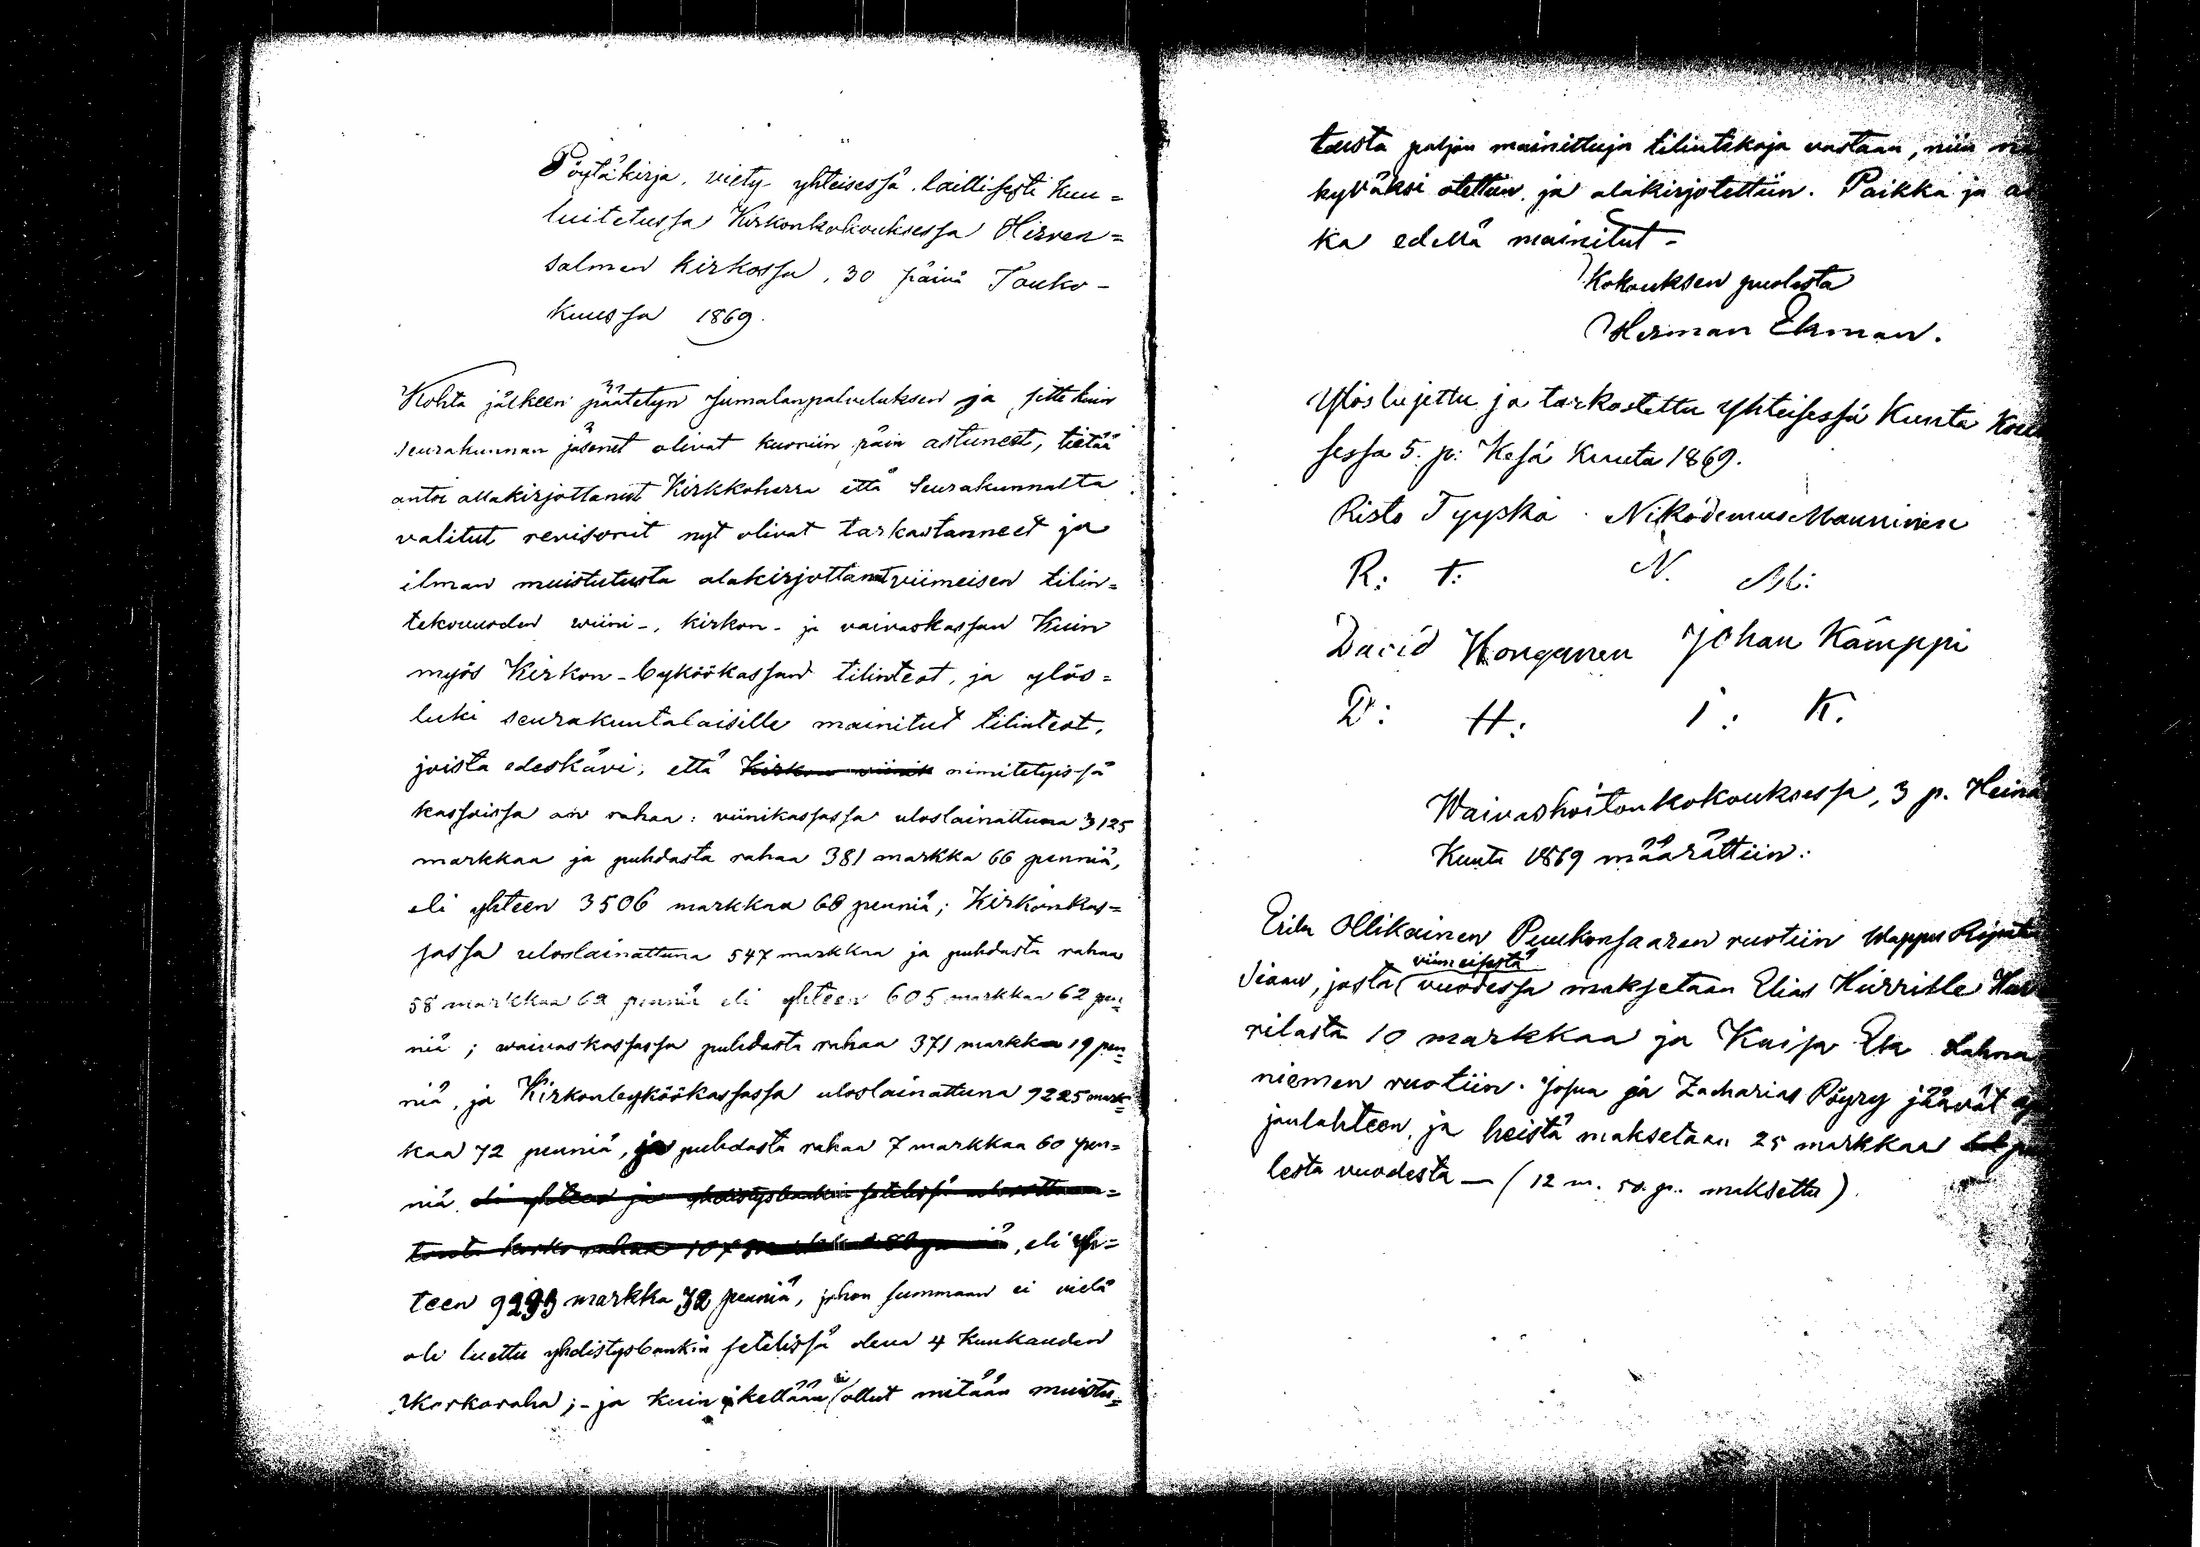 Pöytäkirja, viety yhteisessä laillisesti kuu=
luitetussa Kirkonkokouksessa Hirven=
salmen kirkossa, 30 päivä Touko-
kuussa 1869.
Kohta jälkeen päätetyn Jumalanpalveluksen ja sitte kuin
seurakunnan jäsenet olivat kuoriin päin astuneet, tietää
antoi allakirjottanut Kirkkoherra että Seurakunnalta
valitut revisorit nyt olivat tarkastanneet ja
ilman muistutusta alakirjottanet viimeisen tilin=
tekovuoden wiini-, kirkon- ja vaivaskassan kuin
myös Kirkon-byköökassan tilinteot, ja ylös=
luki seurakuntalaisille mainitut tilinteot,
joista edeskävi, että Kirkon viinik nimitetyissä
kassoissa on rahaa: viinikassassa uloslainattuna 3125
markkaa ja puhdasta rahaa 381 markka 66 penniä,
eli yhteen 3506 markkaa 66 penniä; Kirkonkas=
sassa uloslainattuna 547 markkaa ja puhdasta rahaa
58 markkaa 62 penniä eli yhteen 605 markkaa 62 pen=
niä; waivaskassassa puhdasta rahaa 371 markka 19 pen=
niä, ja Kirkonbyköökassassa uloslainattuna 9225 mark=
kaa 72 penniä, ja puhdasta rahaa 7 markkaa 60 pen=
niä eli yhteen ja yhdistysbankin setelissä
korko rahaa 107, eli yh=
teen markka 32 penniä, johon summaan ei vielä
ole luettu yhdistysbankin setelissä oleva 4 kuukauden
Korkoraha; - ja kuin kellään ei ollut mitään muistu=
tusta paljon mainittuja tilintekoja vastaan, niin
kyväksi otettiin ja alakirjotettiin. Paikka ja ai
ka edellä mainitut-
Kokouksen puolesta
Herman Ekman.
Ylöslujettu ja tarkastettu yhteisessä Kunta Kou
sessa 5. p: Kesä Kuuta 1869.
Risto Tyyskä Nikodemus Manninen
R: T: N. M:
David Honganen Johan Kämppi
D: H: I: K.
Waivashoitonkokouksessa, 3 p. Heinä
Kuuta 1869 määrättiin:
Erik Ollikainen Puukonsaaren ruotiin Wappu
siaan, josta viimeisestä vuodessa maksetaan Elias Hirrille Hir
rilasta 10 markkaa ja Kaisa Ek Lahna
niemen ruotiin. Josua ja Zacharias Pöyry jäävät
joulahteen, ja heistä maksetaan 25 markkaa
lesta vuodesta — (12 m. 50. p. maksettu).